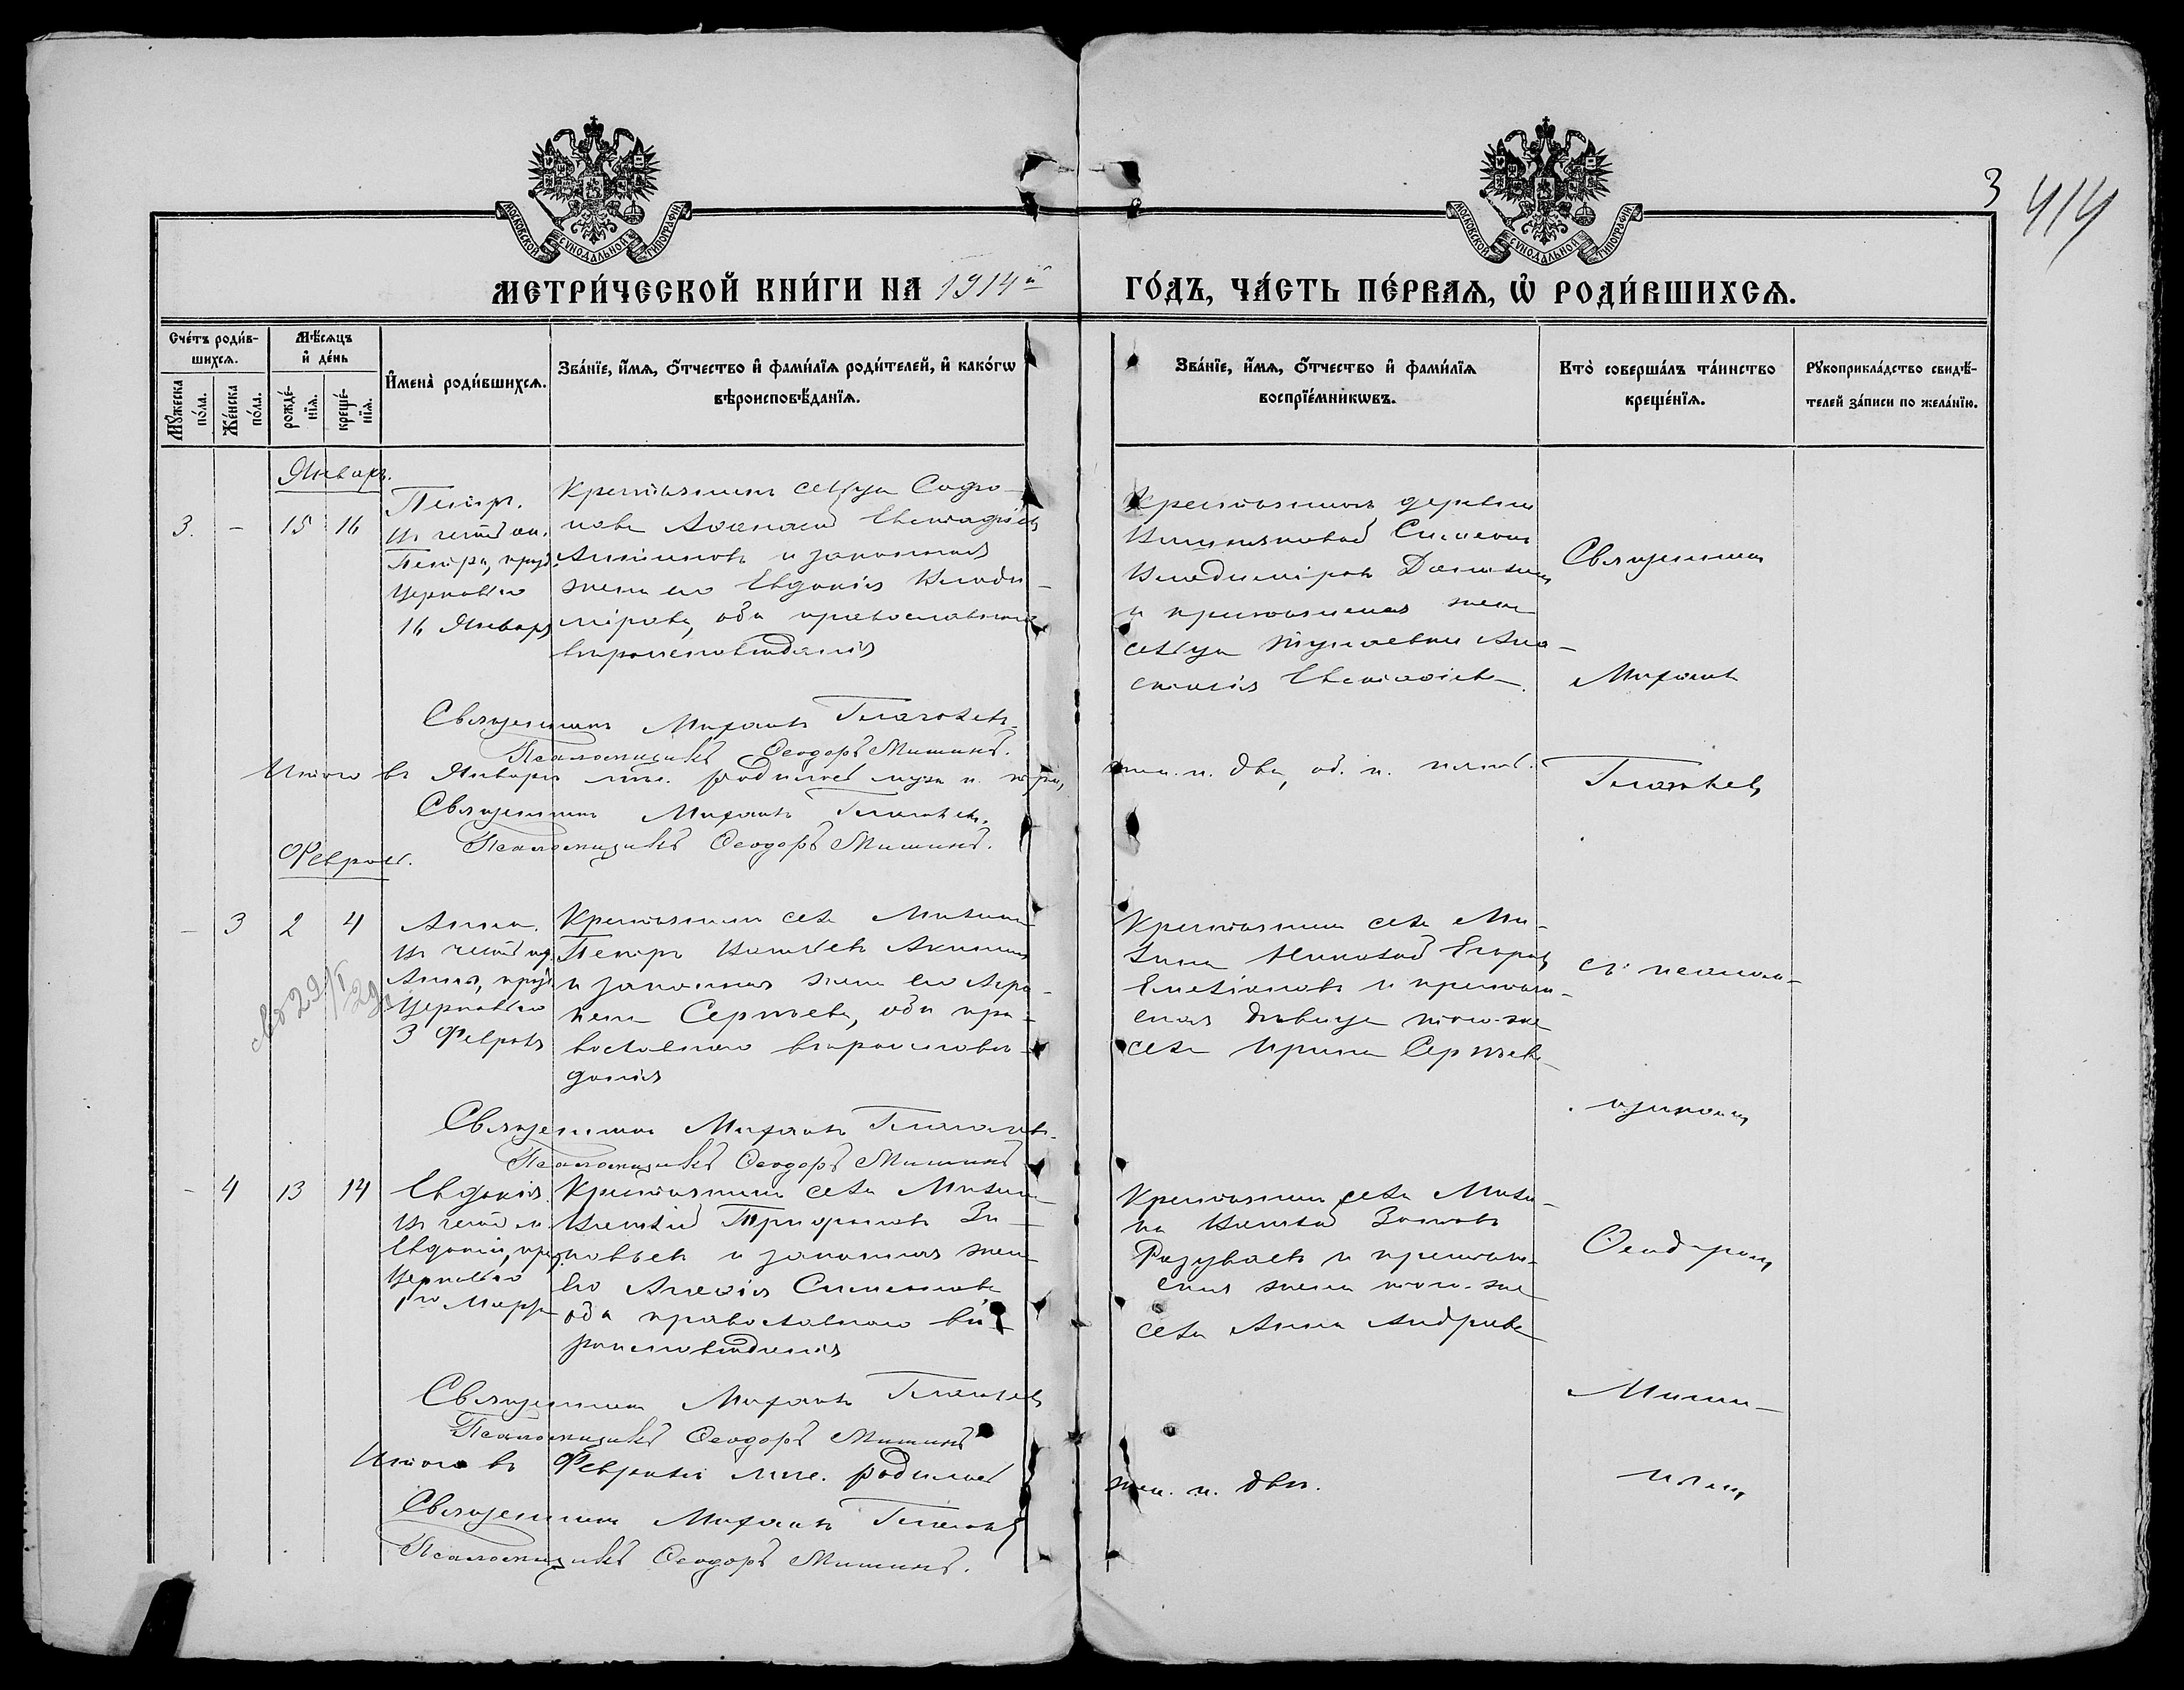 МОСКОВСКОЙ СУНОДАЛЬНОЙ ТИПОГРАФІИ
МОСКОВСКОЙ СУНОДАЛЬНОЙ ТИПОГРАФІИ
3
414
МЕТРИ́ЧЕСКОЙ КНИ́ГИ НА 1914й
ГО́ДЪ, ЧА́СТЬ ПЕ́РВАѦ, Ѽ РОДИ́ВШИХСѦ.
Сче́тъ роди́в-
шихсѧ.
Мꙋжеска по́ла.
Же́нска по́ла.
Мѣ́сѧцъ
и҆ де́нь
рожде́-
нїѧ.
креще́-
нїѧ.
И҆мена̀ роди́вшихсѧ.
Зва́нїе, и҆́мѧ, ѻ҆́тчество и҆ фами́лїѧ роди́телей, и҆ како́гѡ
вѣроисповѣ́данїѧ.
Зва́нїе, и҆́мѧ, ѻ҆́тчество и҆ фами́лїѧ
воспрїе́мникѡвъ.
Кто̀ соверша́лъ та́инство
креще́нїѧ.
Рꙋкоприкла́дство свидѣ́-
телей за́писи по жела́нїю.
Январь.
3. - 15 16
Петръ.
въ честь ап.
Петра, празд.
Церковью
16 Января
Крестьянинъ сельца Сафо-
нова Евстафіевъ
Антиповъ и законная
жена его Евдокія Влади-
мірова, оба православнаго
вѣроисповѣданія
Крестьянинъ деревни
Симеонъ
Владиміровъ
и крестьянская жена
сельца Ана-
стасія Евстафіева.
Священникъ
Михаилъ
Священникъ Михаилъ
Псаломщикъ Ѳеодоръ Мишинъ.
Итого въ Январѣ мѣс. родилось муж. п. три,
жен. п. два, об. п. пять.
Священникъ Михаилъ
Псаломщикъ Ѳеодоръ Мишинъ.
Февраль.
- 3 2 4
Анна.
въ честь пр.
Анны, празд.
Церковью
3 Февраля
Крестьянинъ села
Петръ Акимовъ
и законная жена его Агра-
фена Сергѣева, оба пра-
вославнаго вѣроисповѣ-
данія
Крестьянинъ села
Николай Егоровъ
Емельяновъ и крестьян-
ская дѣвица того-же
села Ирина Сергѣева
съ псалом-
щикомъ
Священникъ Михаилъ
Псаломщикъ Ѳеодоръ Мишинъ
- 4 13 14
Евдокія.
въ честь м.
Евдокіи, праз.
Церковью
1го Марта
Крестьянинъ села
Трифоновъ Зи-
новьевъ и законная жена
его Симеонова
оба православнаго вѣ-
роисповѣданія
Крестьянинъ села
Разуваевъ и крестьян-
ская жена того-же
села Анна Андреева
Ѳеодоромъ
Миши-
нымъ
Священникъ Михаилъ
Псаломщикъ Ѳеодоръ Мишинъ
Итого въ Февралѣ мѣс. родилось
жен. п. два.
Священникъ Михаилъ
Псаломщикъ Ѳеодоръ Мишинъ.